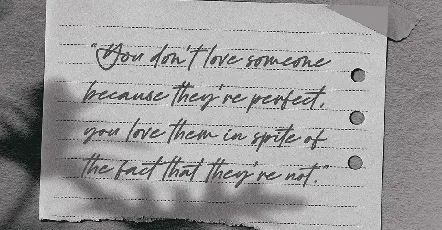 "You don't love someone
because they're perfect,
you love them in spite of
the fact that they're not."